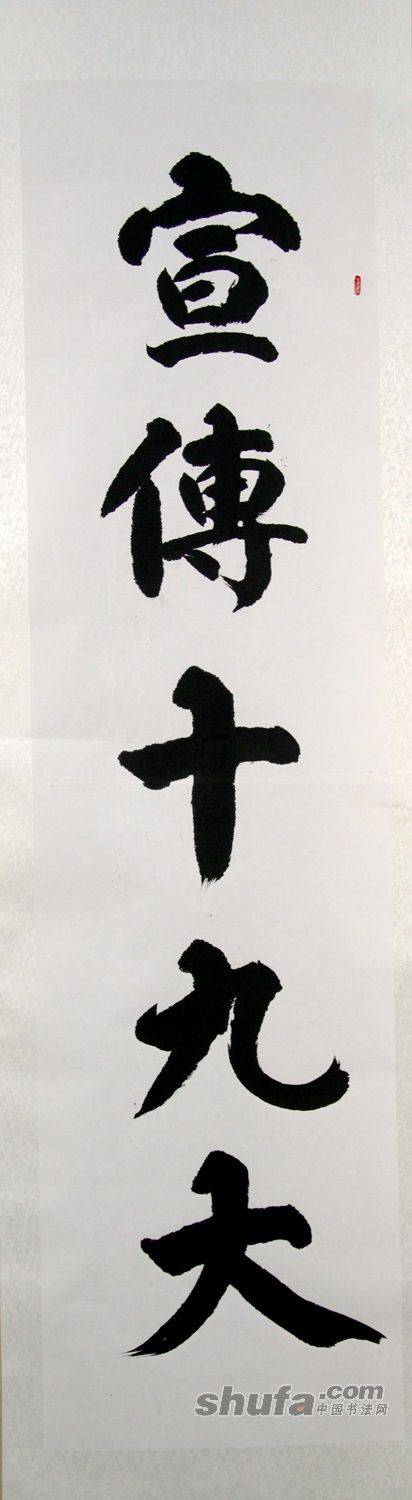 宣傳十九大
shufa.com
中国书法网